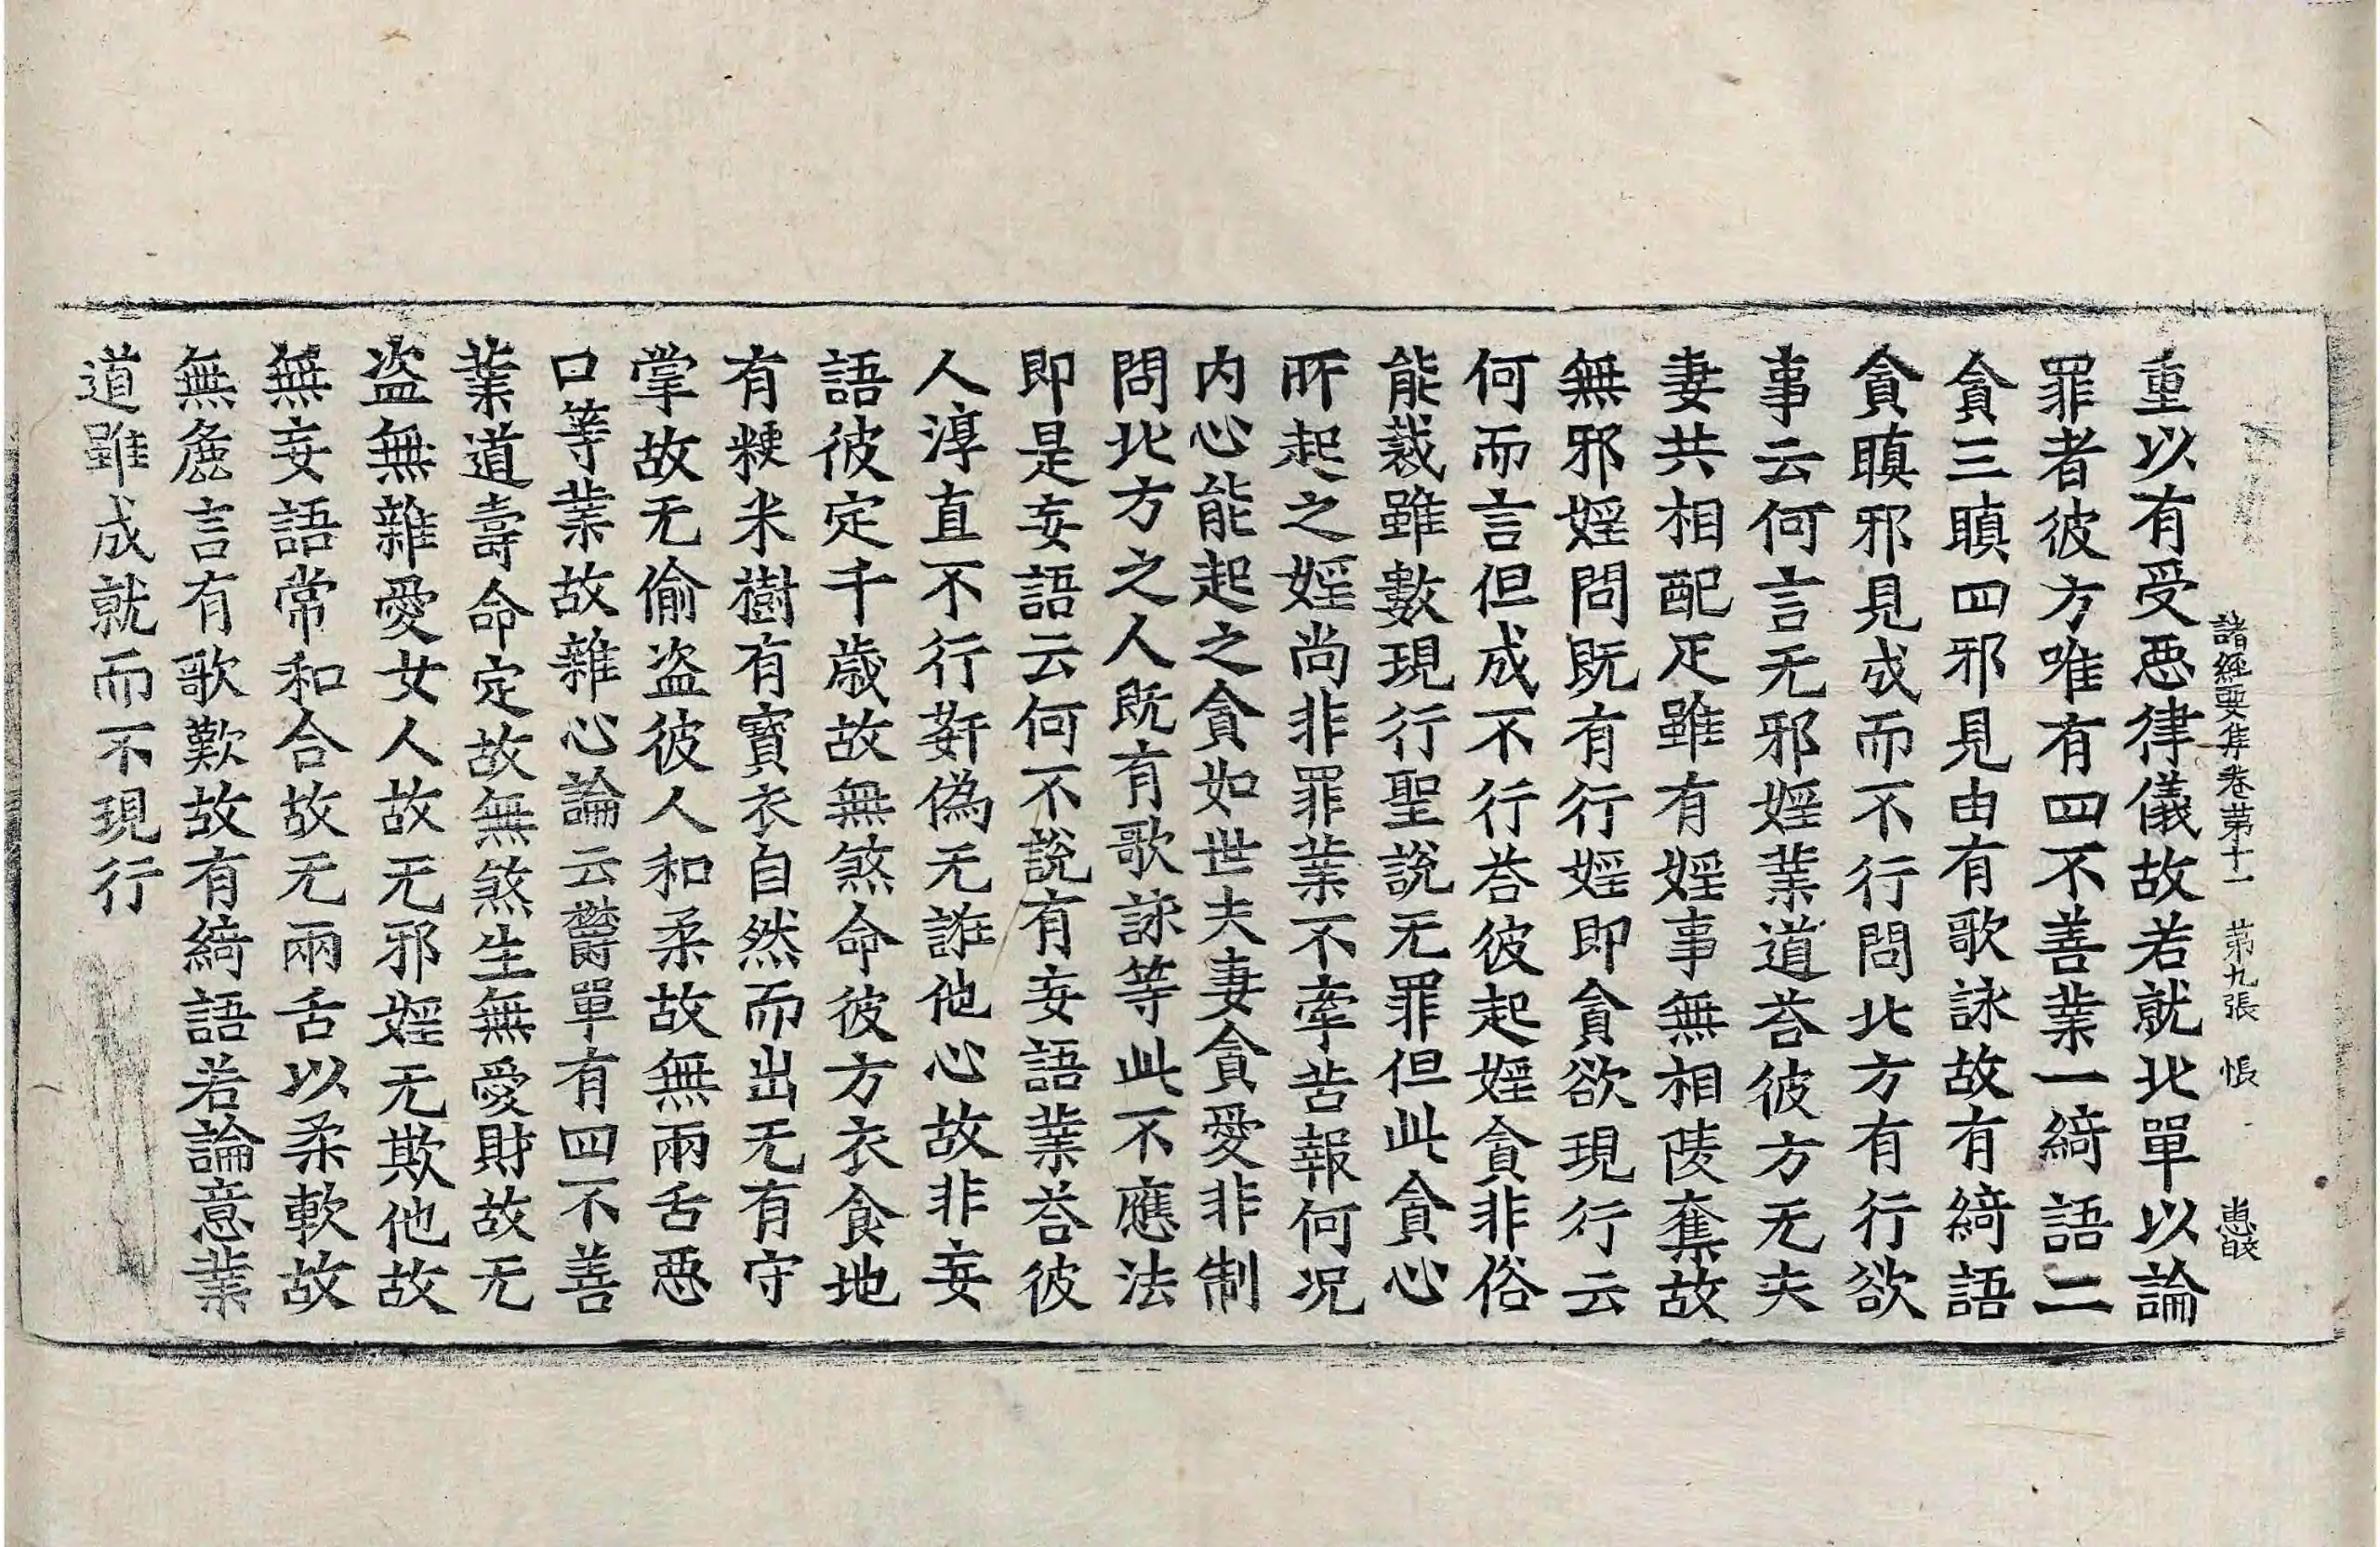 諸經要集卷第十一 第九張 悵
重以有受惡律儀故若就北單以論
罪者彼方唯有四不善業一綺語二
貪三瞋四邪見由有歌詠故有綺語
貪瞋邪見成而不行問北方有行欲
事云何言无邪婬業道荅彼方无夫
妻共相配疋雖有婬事無相陵奪故
無邪婬問既有行婬即貪欲現行云
何而言但成不行荅彼起婬貪非俗
能裁雖數現行聖說无罪但此貪心
所起之婬尚非罪業不牽苦報何况
内心能起之貪如世夫妻貪愛非制
問北方之人既有歌詠等此不應法
即是妄語云何不說有妄語業荅彼
人淳直不行姧偽无誑他心故非妄
語彼定千歲故無煞命彼方衣食地
有粳米樹有寶衣自然而出无有守
掌故无偷盜彼人和柔故無兩舌惡
口等業故雜心論云欝單有四不善
業道壽命定故無煞生無愛財故无
盜無雜愛女人故无邪婬无欺他故
無妄語常和合故无兩舌以柔軟故
無麁言有歌歎故有綺語若論意業
道雖成就而不現行